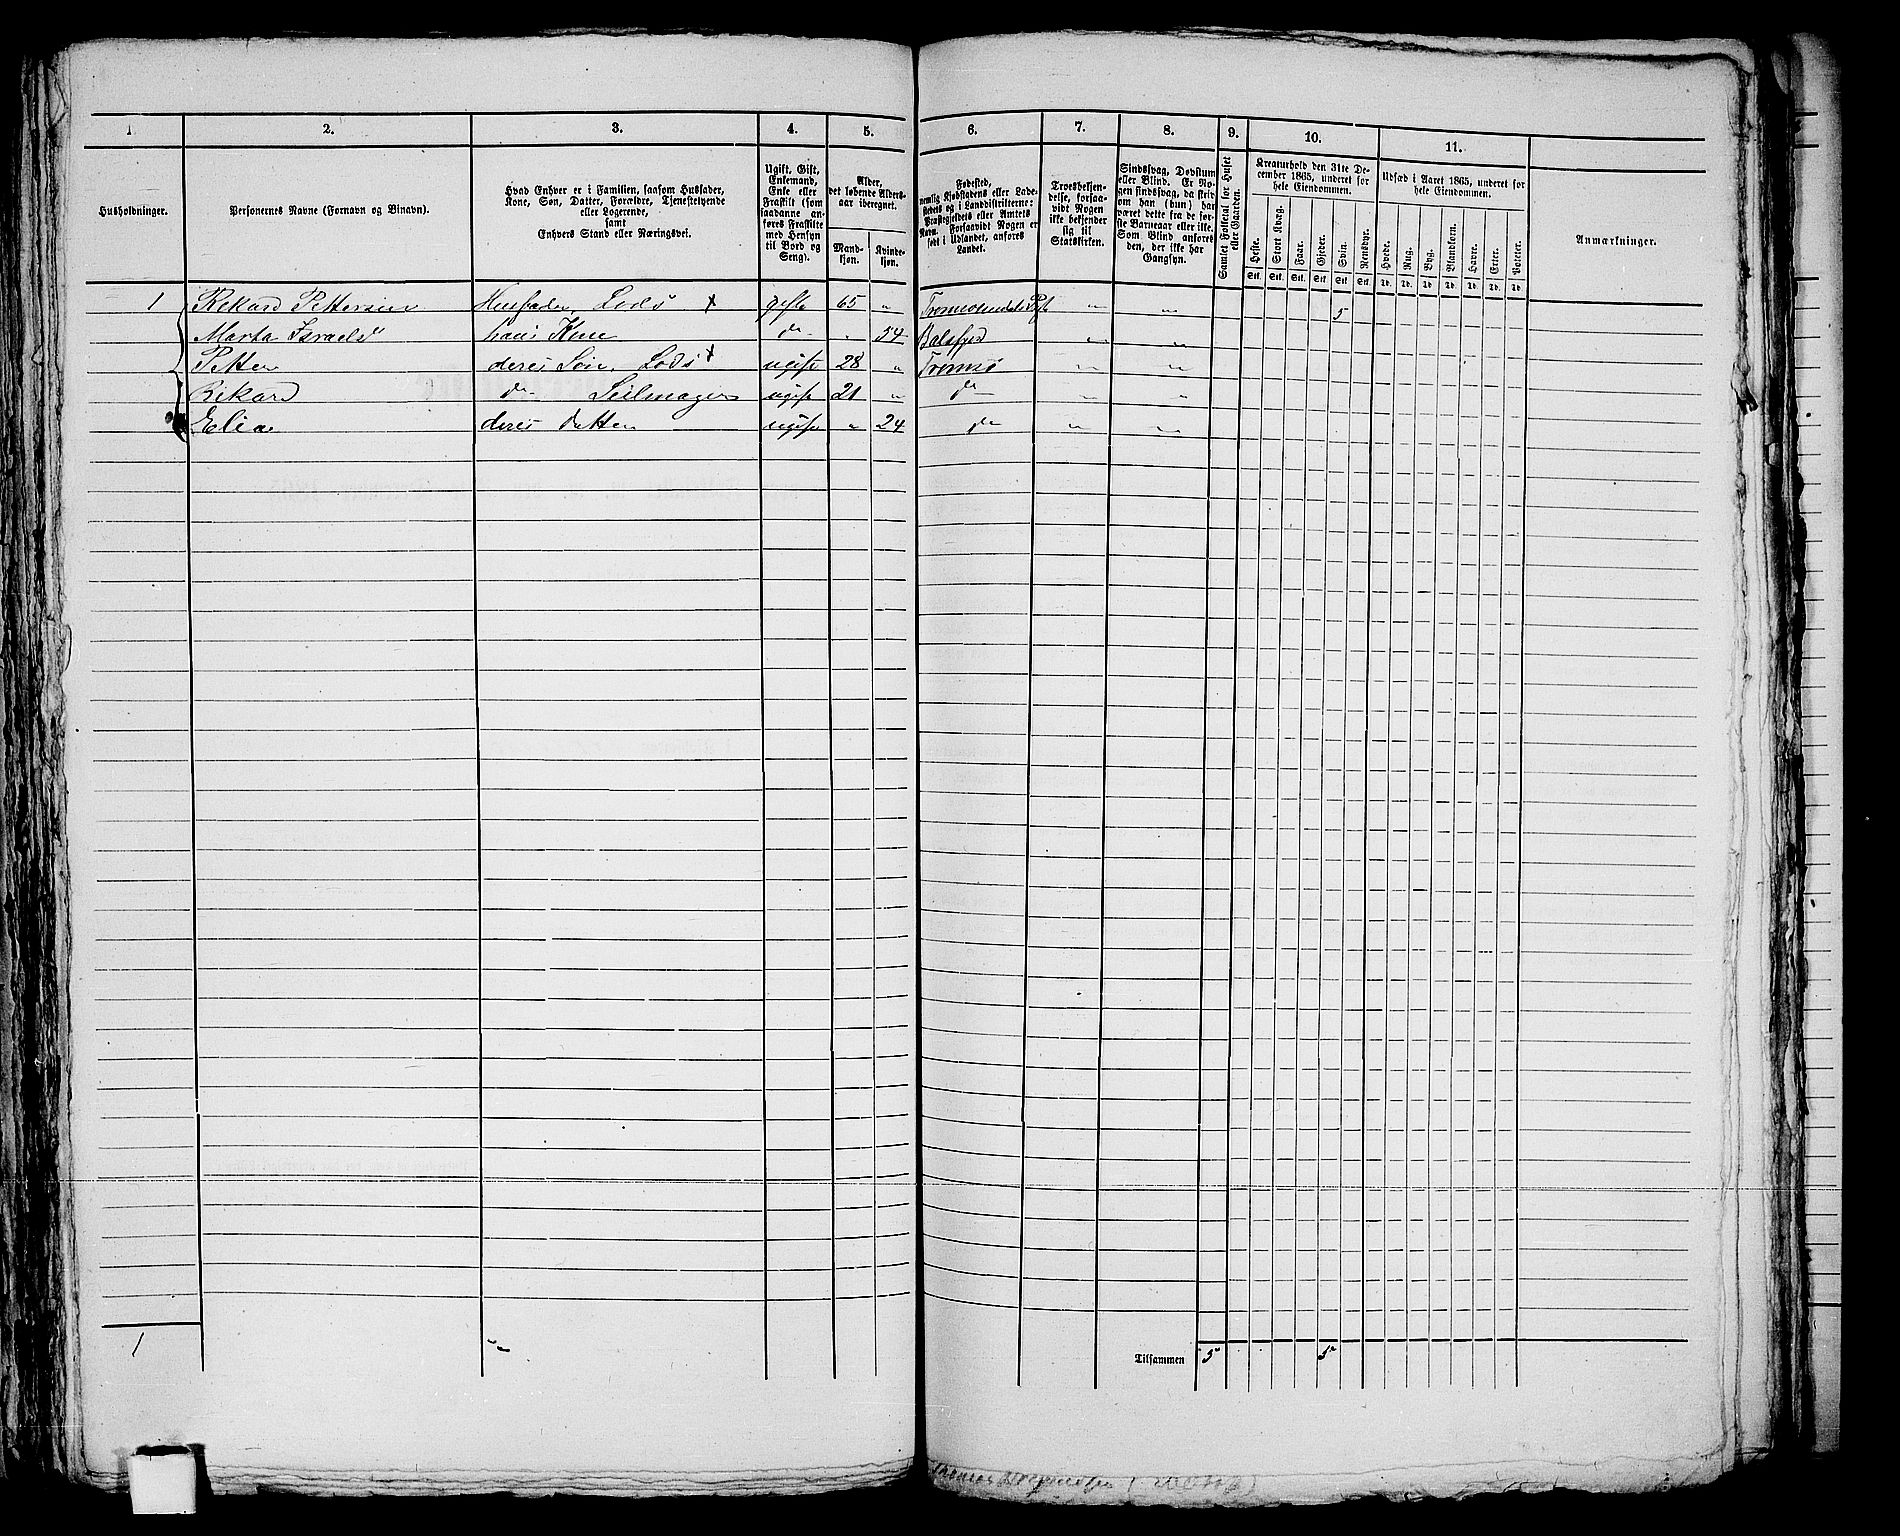 1 2. 3. 4. 5. 6. 7. 8. 9. 10. 11.
Husholdninger.
Personernes Navne (Fornavn og Binavn).
Hvad Enhver er i Familien, saasom Husfader,
Kone, Søn, Datter, Forældre, Tjenestetyende
eller Logerende,
samt
Enhvers Stand eller Næringsvei.
Ugift, Gift,
Enkemand,
Enke eller
Fraskilt (som
saadanne an-
føres Fraskilte
med Hensyn
til Bord og
Seng).
Alder,
det løbende Alders-
aar iberegnet.
Mand-
kjøn.
Kvinde-
kjøn.
Fødested,
nemlig Kjøbstadens eller Lade-
stedets og i Landdistrikterne:
Præstegjeldets eller Amtets
Navn. Forsaavidt Nogen er
født i Udlandet, anføres
Landet.
Troesbekjen-
delse, forsaa-
vidt Nogen
ikke bekjender
sig til
Statskirken.
Sindssvag, Døvstum
eller Blind. Er No-
gen sindssvag, da skriv
om han (hun) har
været dette fra de før-
ste Barneaar eller ikke.
Som Blind anføres
den, der ikke har
Gangsyn.
Samlet Folketal for Huset
eller Gaarden.
Kreaturhold den 31te De-
cember 1865, underet for
hele Eiendommen.
Heste. Stort Kvæg. Faar. Gjeder. Svin. Rensdyr.
Stk. Stk. Stk. Stk. Stk. Stk.
Udsæd i Aaret 1865, underet for
hele Eiendommen.
Hvede. Rug. Byg. Blandkorn. Havre. Erter. Poteter.
Td. Td. Td. Td. Td. Td. Td.
Anmærkninger.
1 Rikard Pettersen Husfader, Lods x gifte 65 " Tromsösundets Pgt " " 5
Marta Israels" hans Kone do " 54 Balsfjord " "
Petter deres Sön, Lods x ugift 28 " Tromsö " "
Rikard do Seilmager ugift 21 " do " "
Elia deres Datter ugift " 24 do " "
1 Tilsammen 5 5